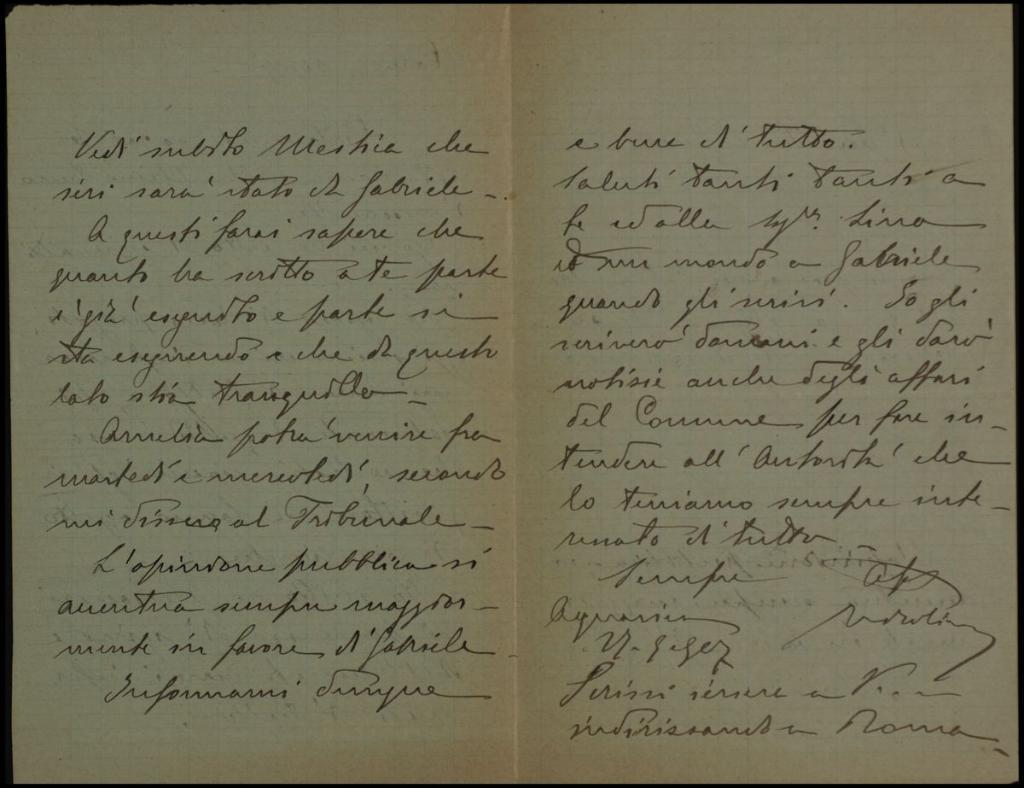 Vedi subito Mestica che
ieri sarà stato da Gabriele –
A questi farai sapere che
quanto ha scritto a te parte
è già eseguito e parte si
sta eseguendo e che da questo
lato stia tranquillo –
Amelia potrà venire fra
martedì e mercoledì, secondo
mi dissero al Tribunale –
L'opinione pubblica si
accentua sempre maggior–
mente in favore di Gabriele
Informami dunque
e bene di tutto.
Saluti tanti tanti a
te ed alla Sig.ra Lina
ed un mondo a Gabriele
quando gli scrivi. Io gli
scriverò domani e gli darò
notizie anche degli affari
del Comune per fare in–
tendere all'Autorità che
lo teniamo sempre infor–
mato di tutto –
Sempre aff.
Scrissi iersera a
indirizzando a Roma –